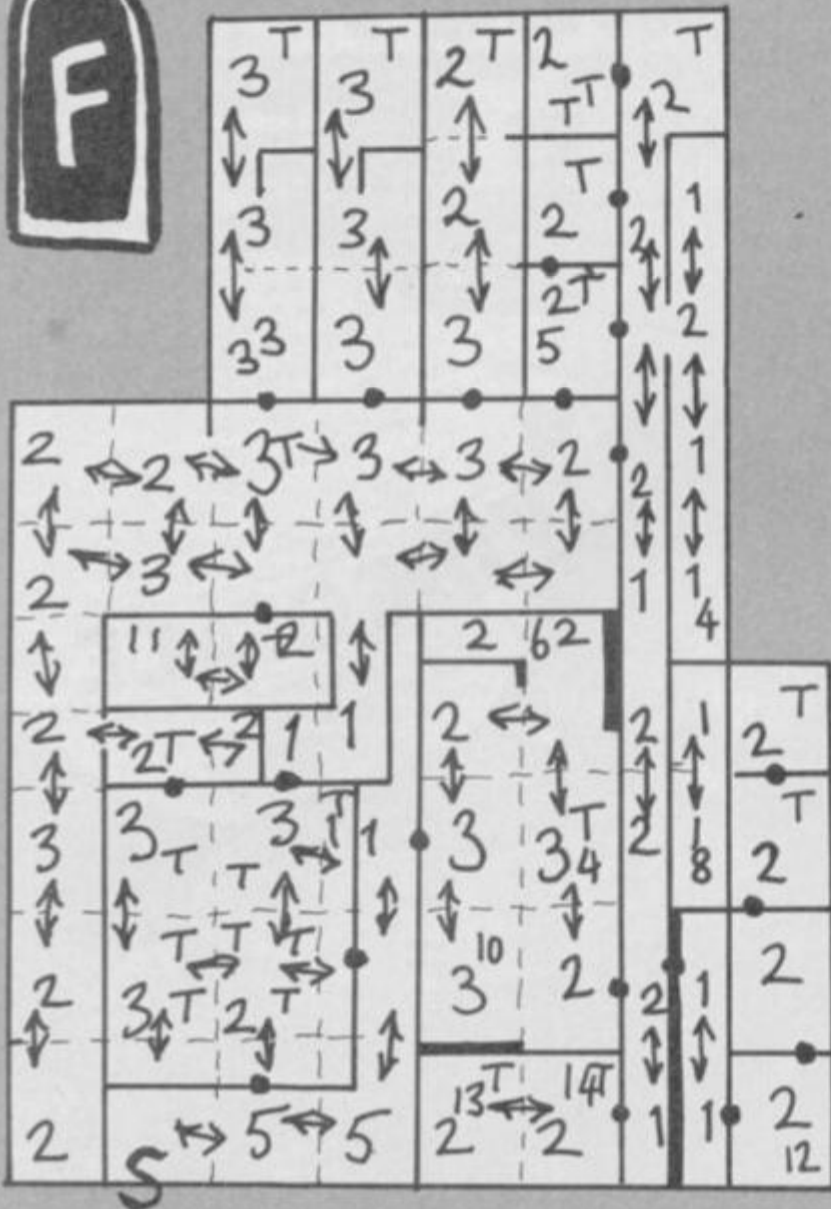 F
T T T 2 T
3 3 2 T T 2
T 1
3 3 2 2 2
2 T 2
3 3 3 3 5
2 2 3 T 3 3 2 2 1
2 3 1 1
4
11 T 2 2 6 2
2 2 T 2 1 1 2 2 1 2 T
3 3 T 3 T 1 1 3 3 T 4 2 1 8 2 T
T T T T
2 3 T 2 T 3 10 2 2 1 2
2 S 5 5 2 13 T 2 14 T 1 1 2
12